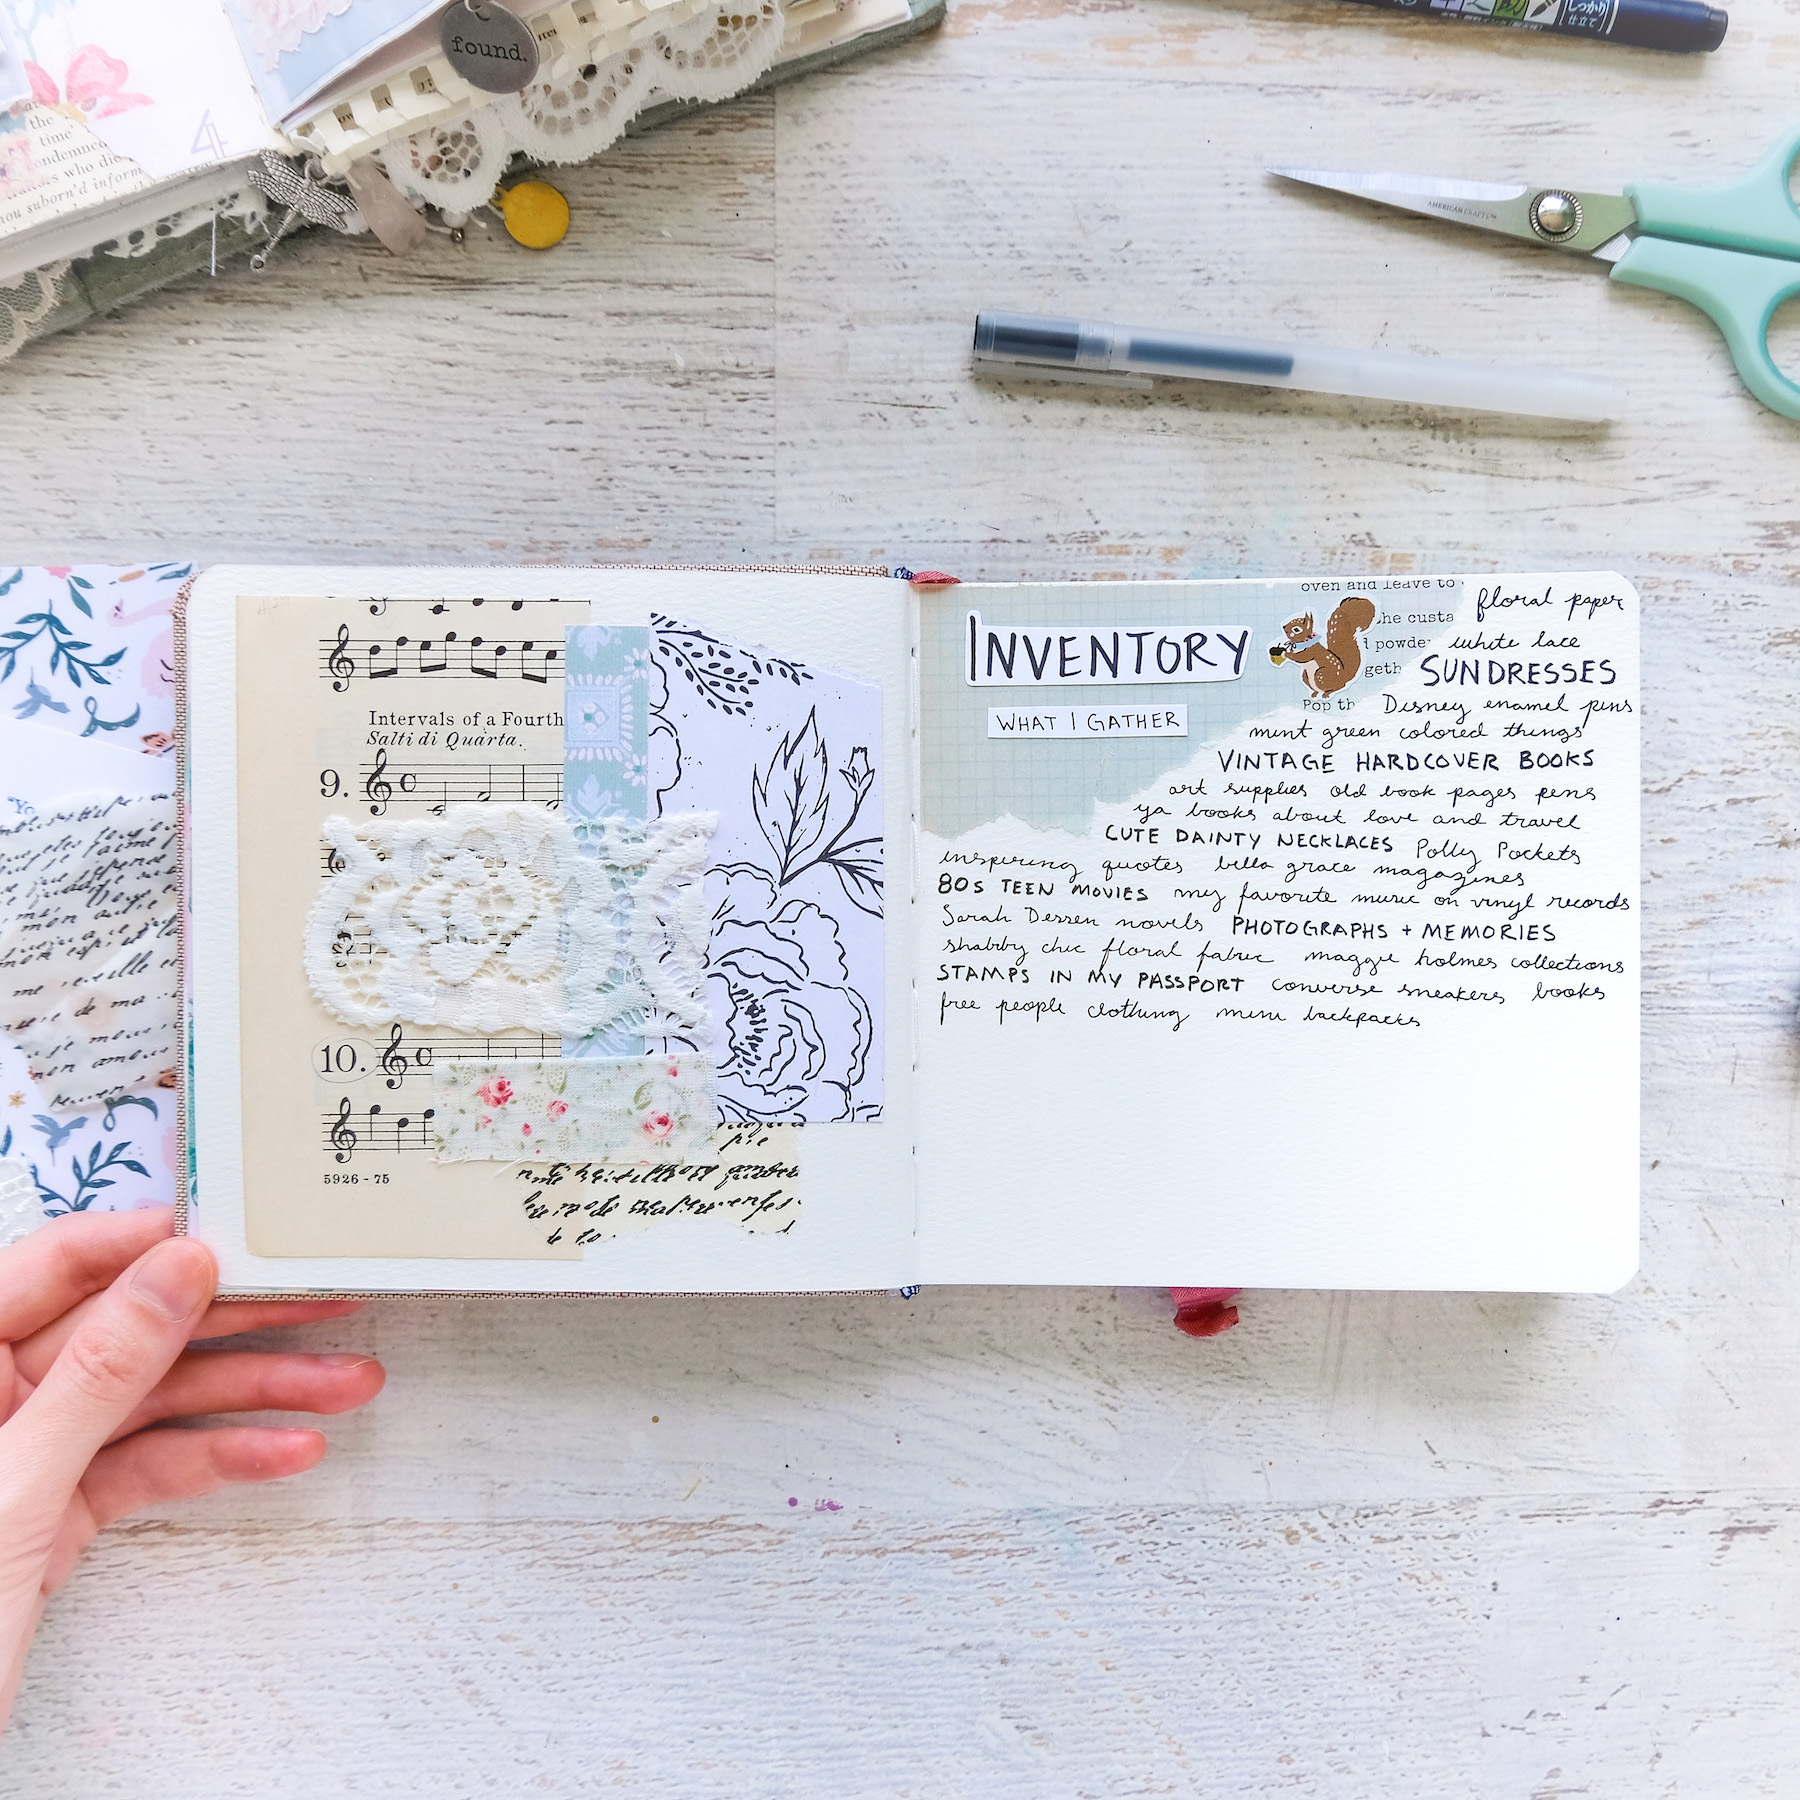 found.
しっかり
仕立て
the
time'
ondemned
who die
hou suborn'd inform
4
AMERICAN CRAFTS™
Intervals of a Fourth
Salti di Quarta.
9.
10.
5926 - 75
oven and leave to
he custa
powde
geth
Pop th
INVENTORY
WHAT I GATHER
floral paper
white lace
SUNDRESSES
Disney enamel pins
mint green colored things
VINTAGE HARDCOVER BOOKS
art supplies old book pages pens
ya books about love and travel
CUTE DAINTY NECKLACES Polly Pockets
inspiring quotes bella grace magazines
80s TEEN MOVIES my favorite music on vinyl records
Sarah Dessen novels PHOTOGRAPHS + MEMORIES
shabby chic floral fabric maggie holmes collections
STAMPS IN MY PASSPORT converse sneakers books
free people clothing mini backpacks